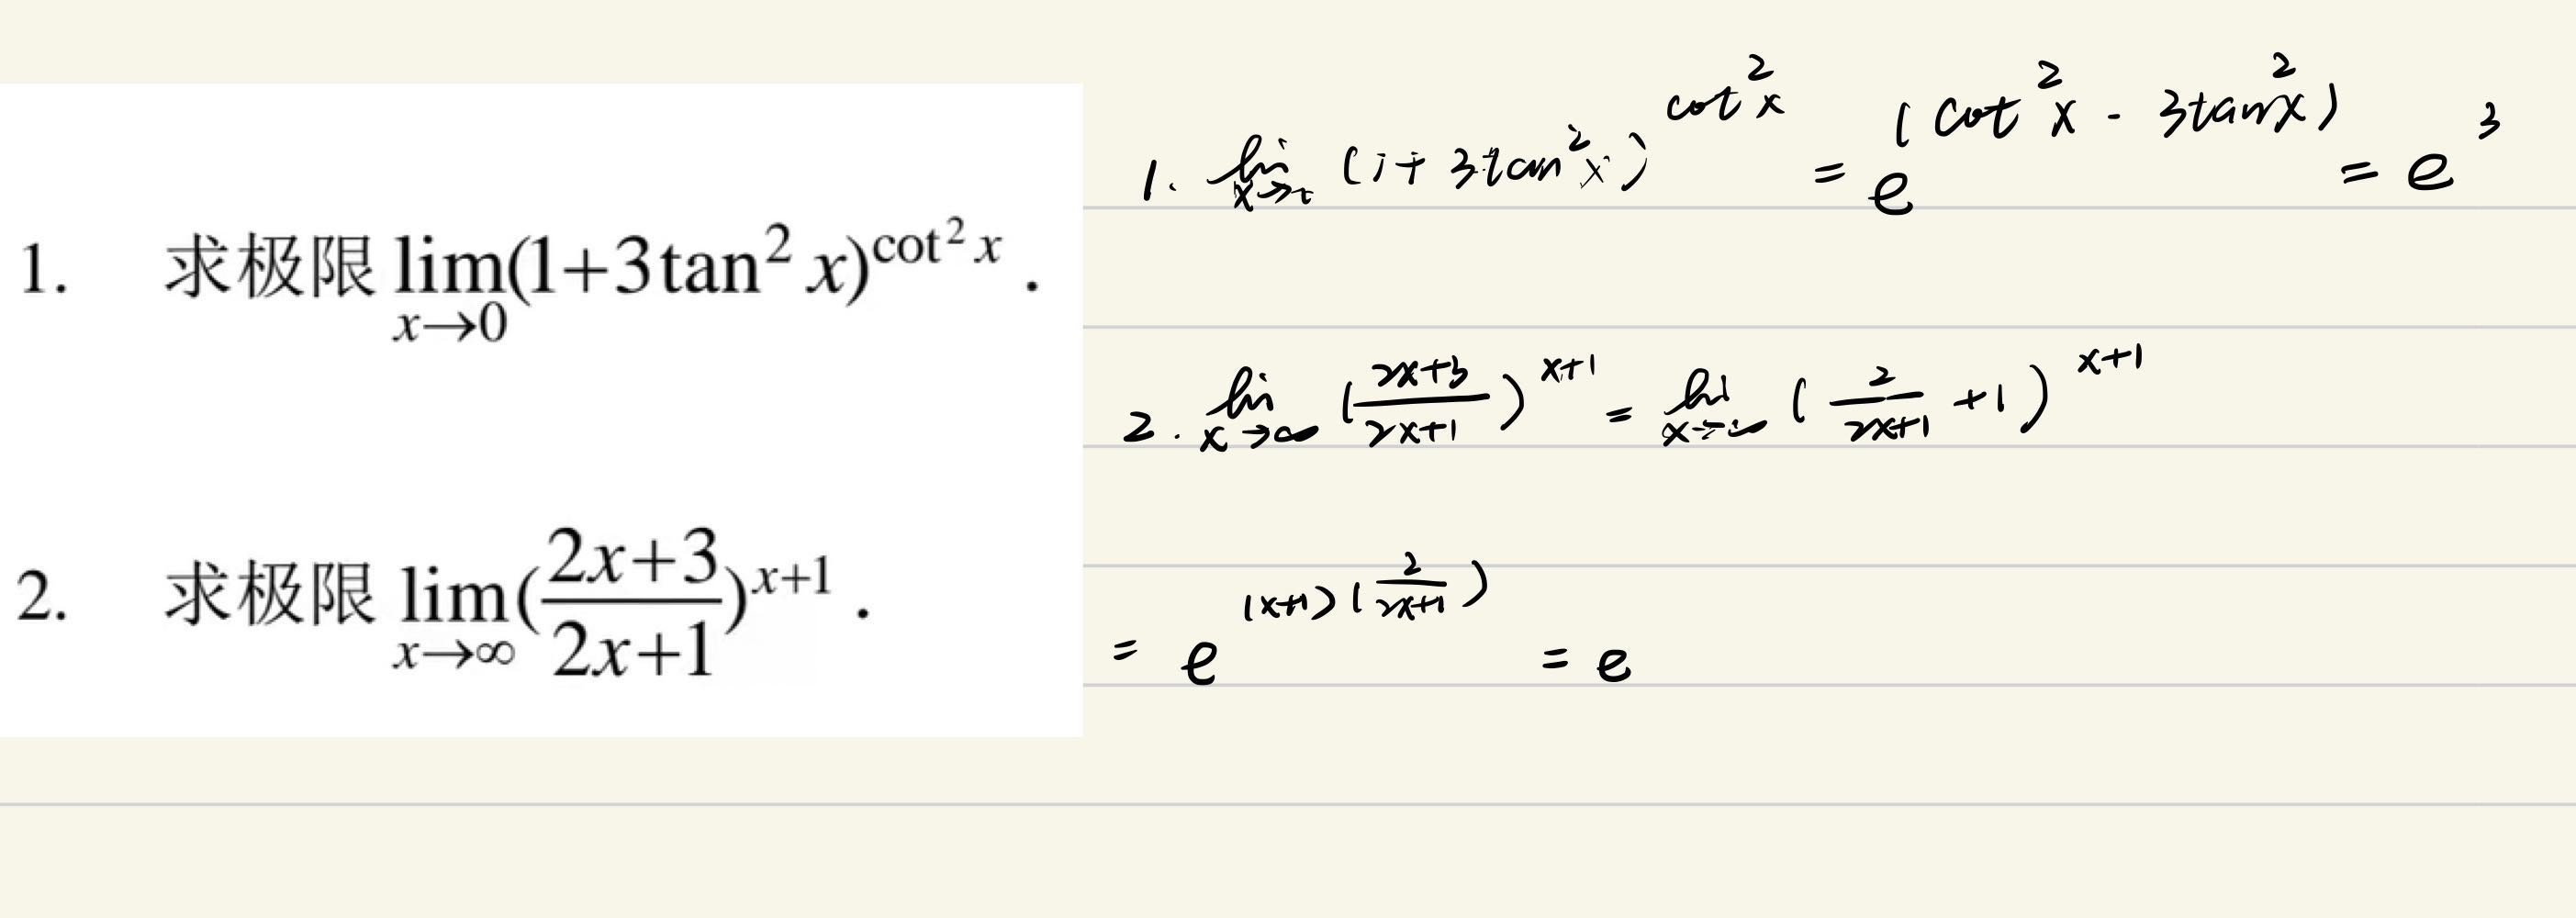 1. 求极限 $\lim_{x \to 0}(1+3\tan^2 x)^{\cot^2 x}$ .
2. 求极限 $\lim_{x \to \infty}(\frac{2x+3}{2x+1})^{x+1}$ .
1. $\lim_{x \to}(1+3\tan^2 x)^{\cot^2 x} = e^{(\cot^2 x \cdot 3\tan^2 x)} = e^3$
2. $\lim_{x \to \infty}(\frac{2x+3}{2x+1})^{x+1} = \lim_{x \to \infty}(\frac{2}{2x+1}+1)^{x+1}$
$= e^{(x+1)(\frac{2}{2x+1})} = e$